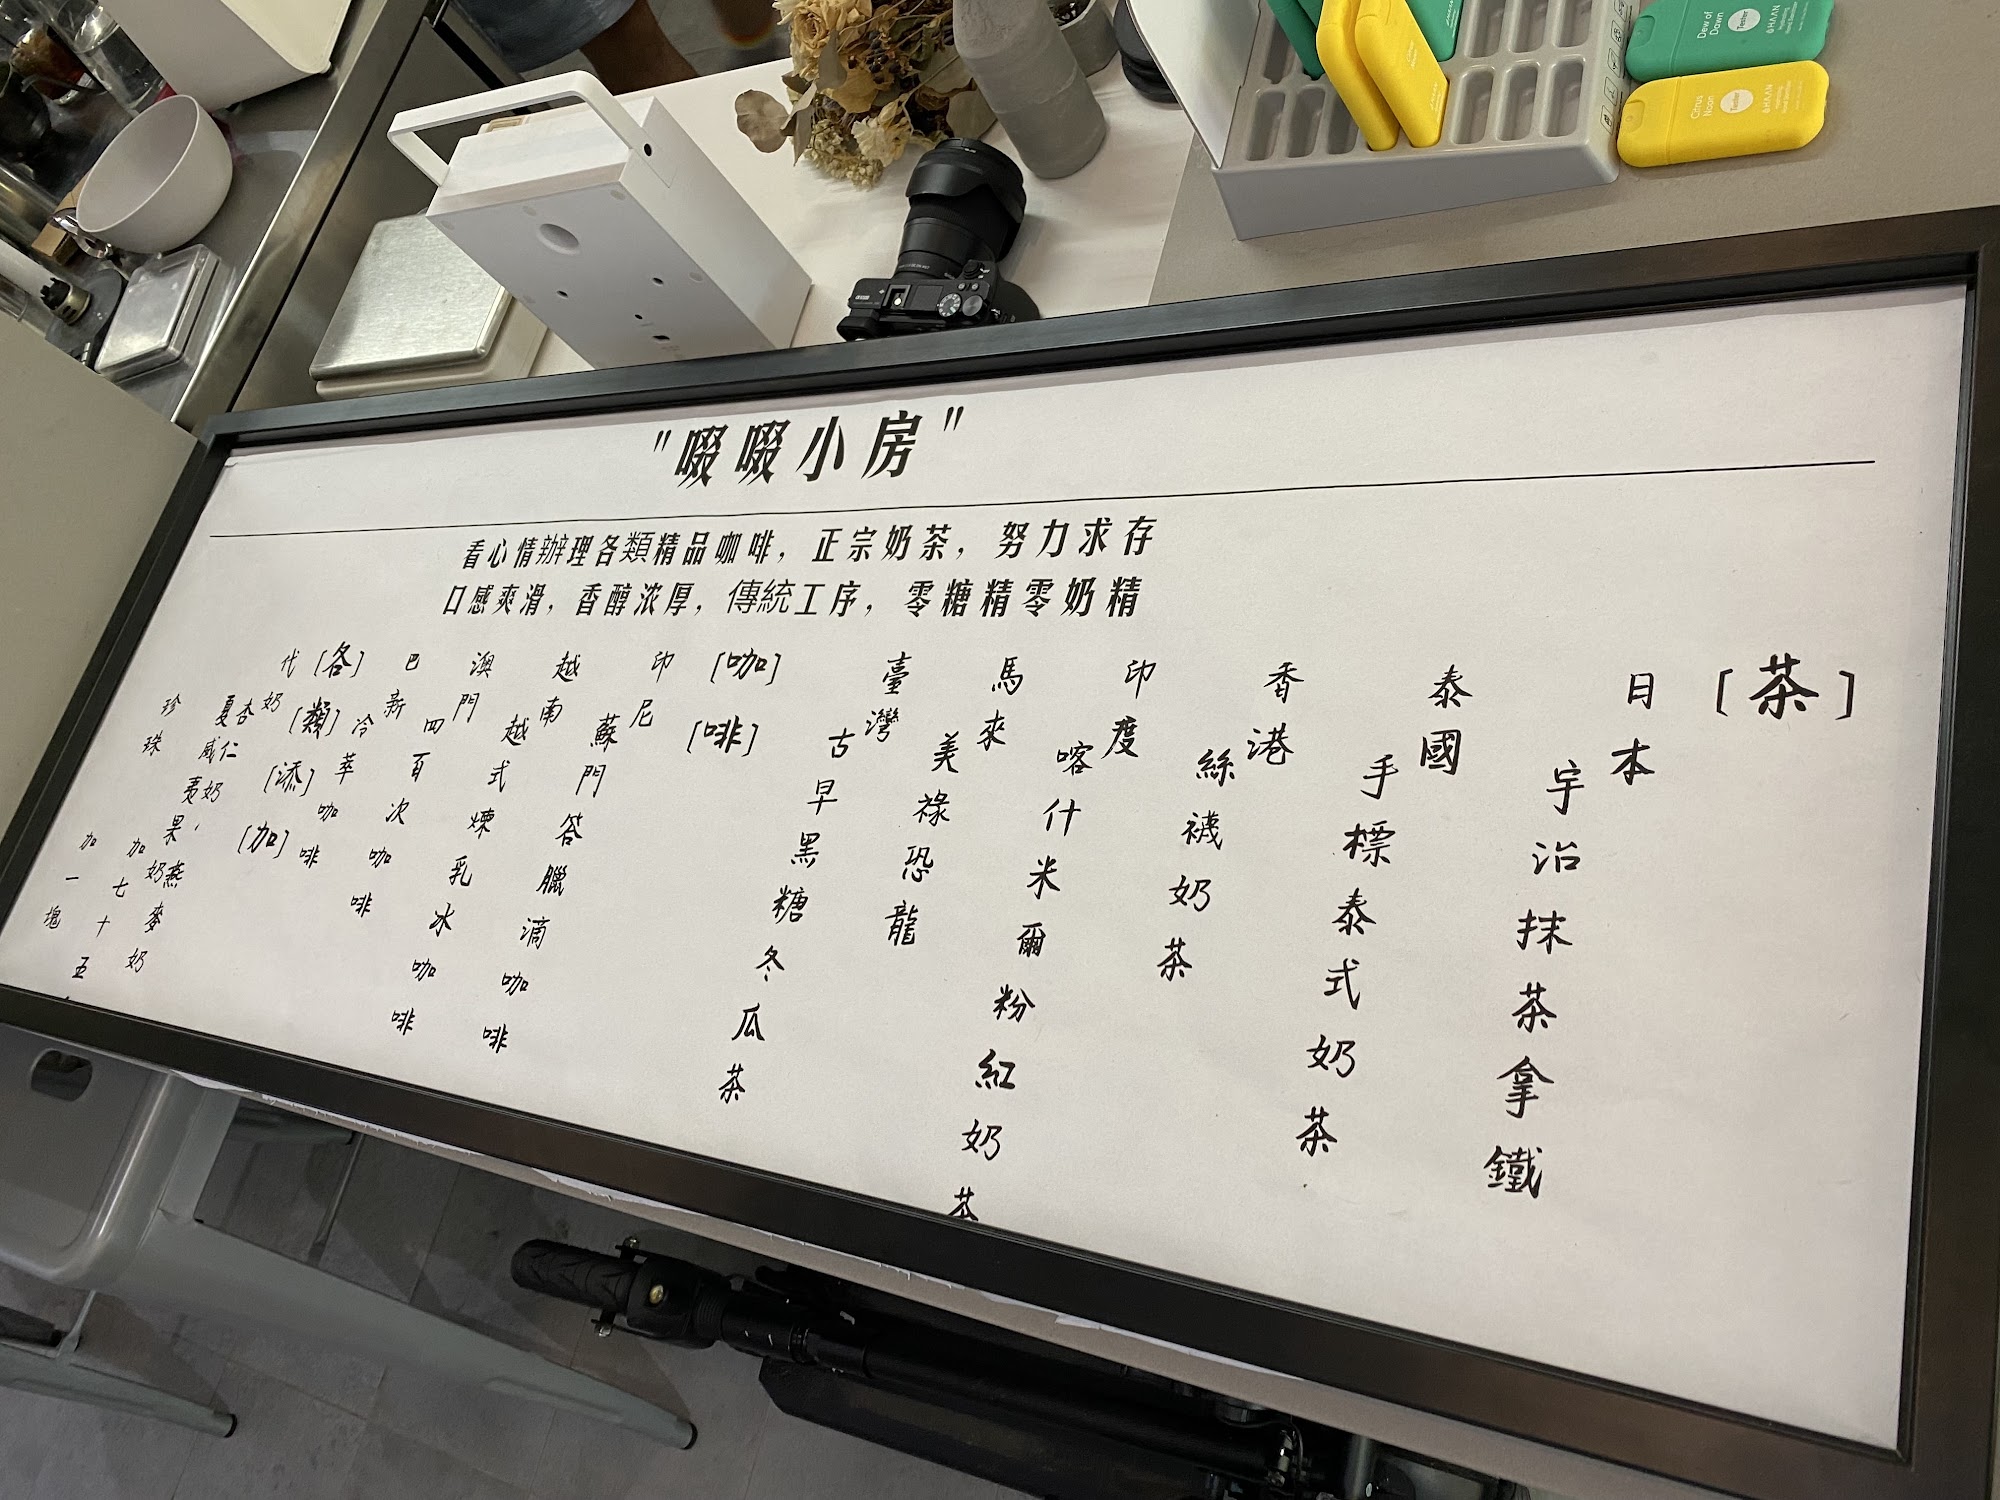 "啜啜小房"
看心情辦理各類精品咖啡，正宗奶茶，努力求存
口感爽滑，香醇浓厚，傳統工序，零糖精零奶精
[茶]
日本
宇治抹茶拿鐵
泰國
手標泰式奶茶
香港
絲襪奶茶
印度
喀什米爾粉紅奶茶
馬來
美祿恐龍
臺灣
古早黑糖冬瓜茶
[咖][啡]
印尼
蘇門答臘滴咖啡
越南
越式煉乳冰咖啡
澳門
四百次咖啡
巴新
冷萃咖啡
[各][類][添][加]
代奶
杏仁奶、燕麥奶
夏威夷果奶
加七十五
珍珠
加一塊
Dew of Dawn
Tester
HAAN
Citrus Noon
Tester
HAAN